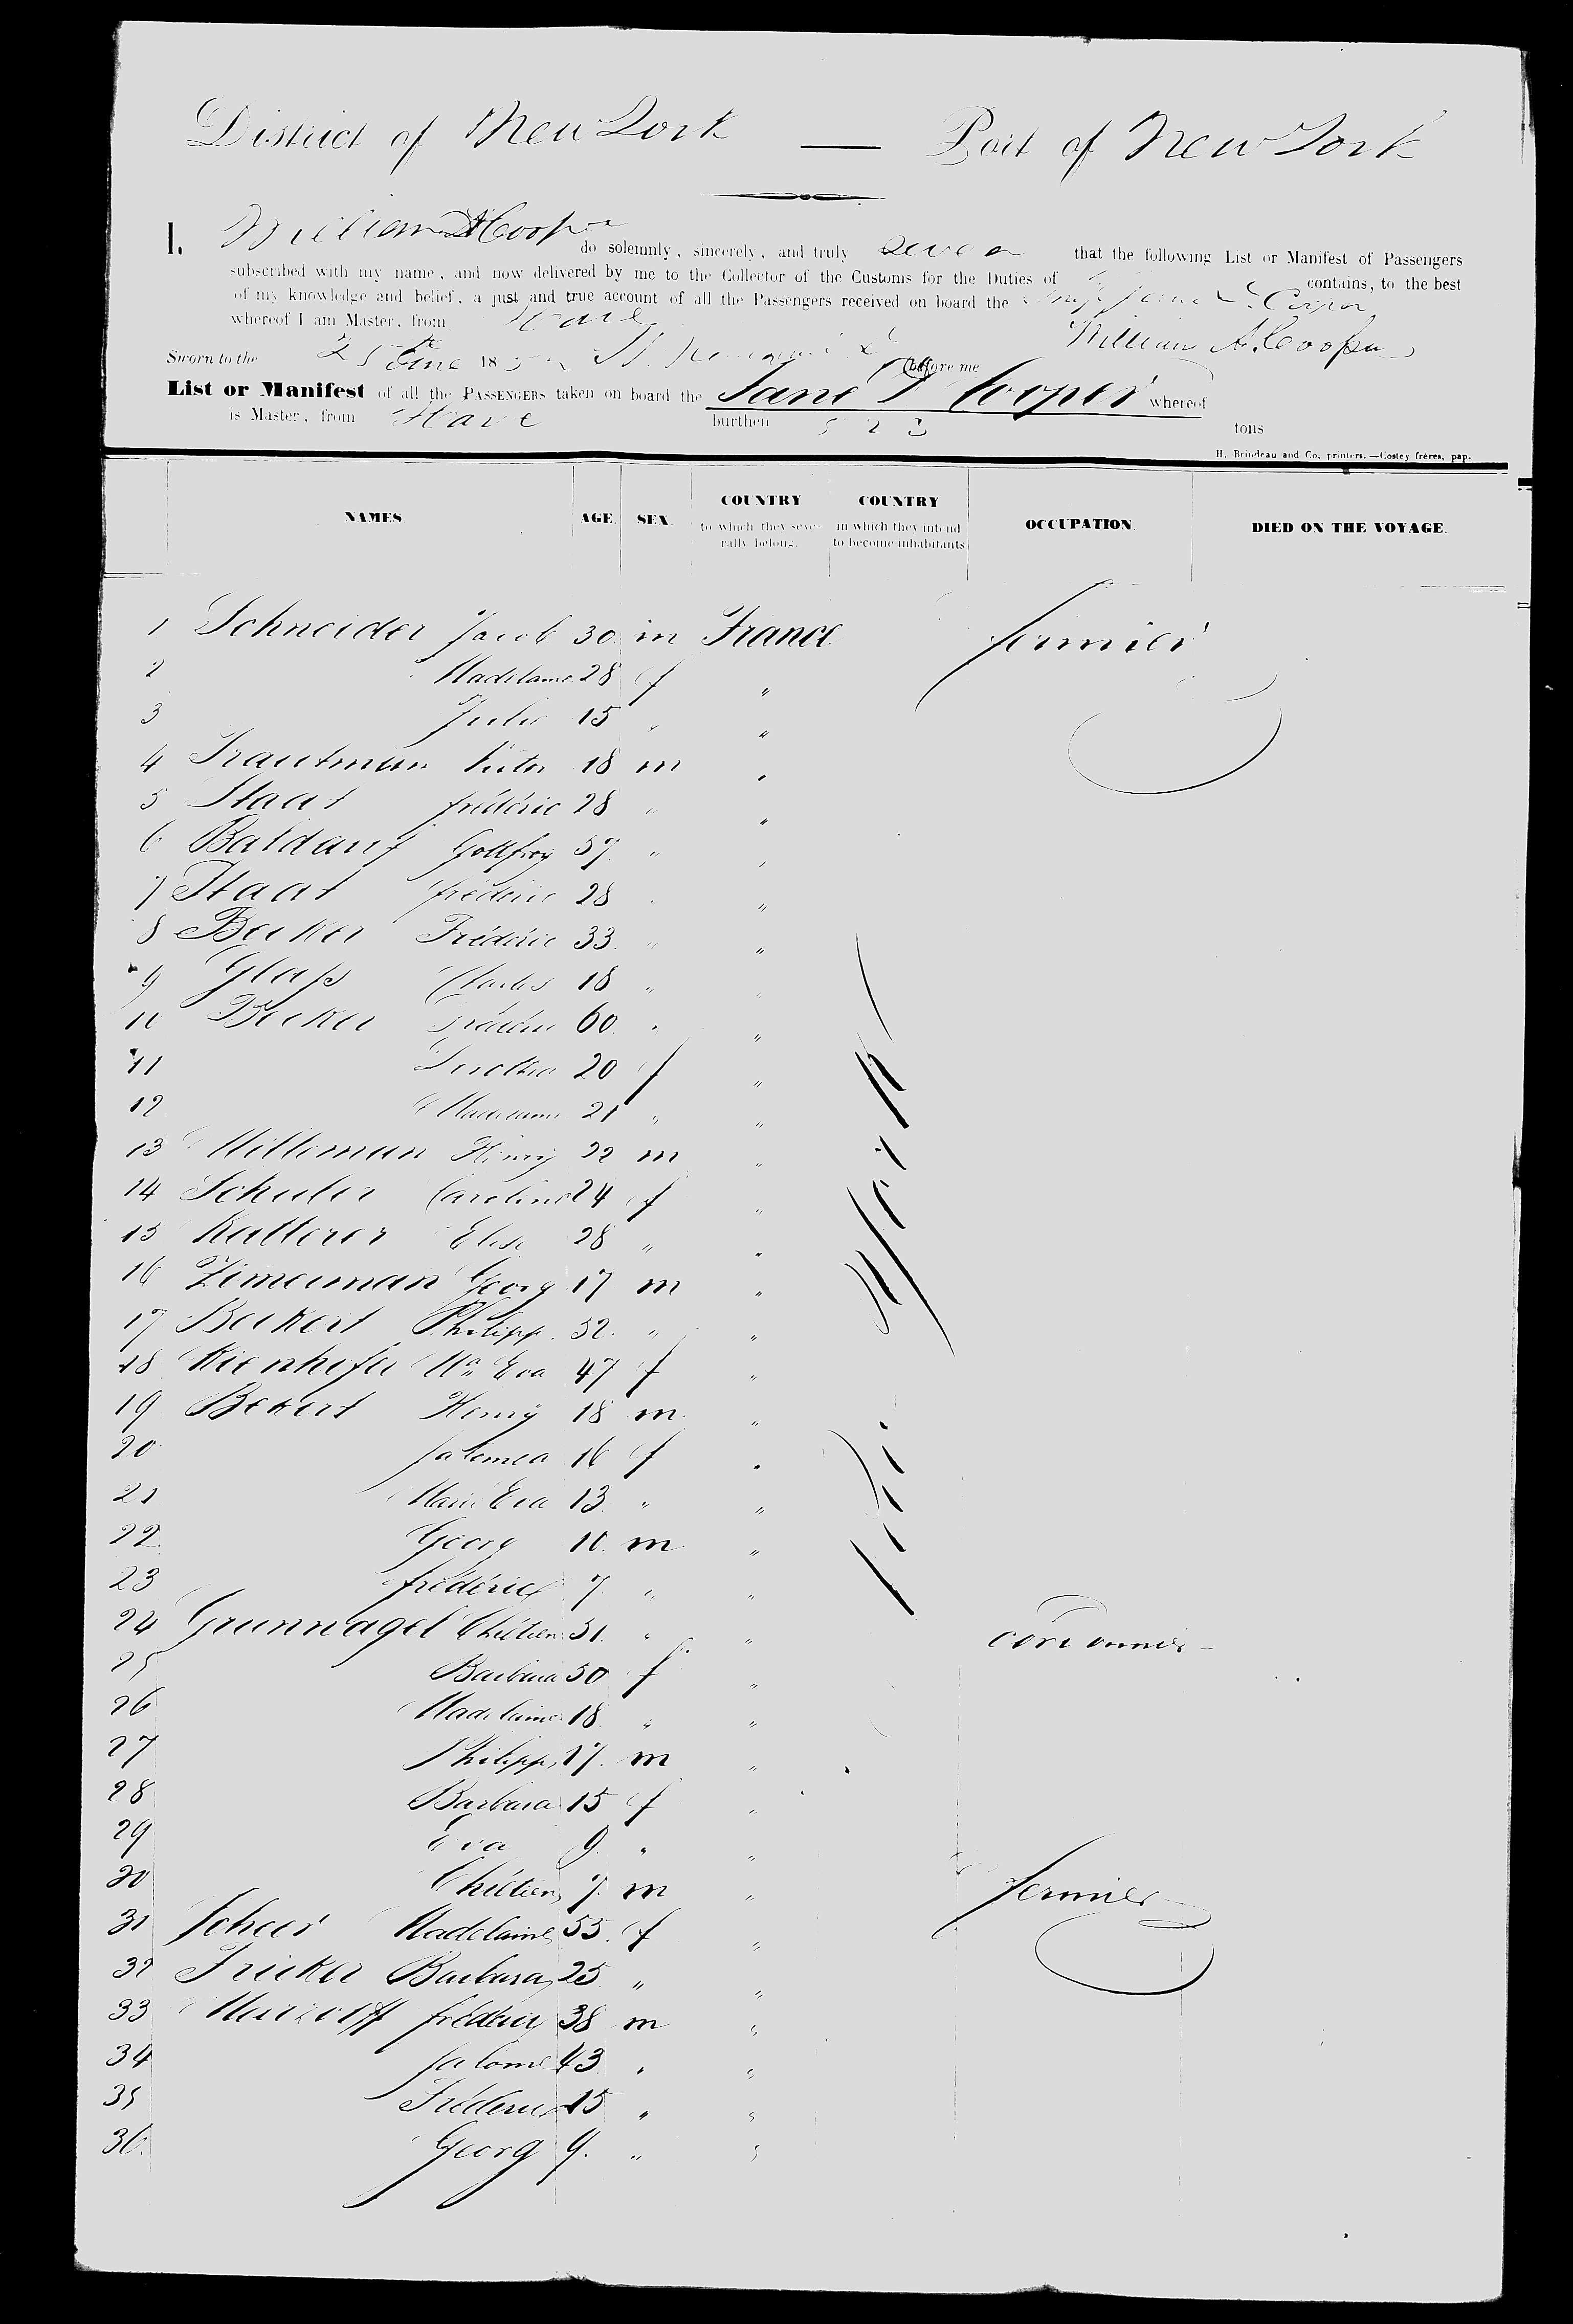 District of New York — Port of New York
I, William A Cooper do solemnly, sincerely, and truly swear that the following List or Manifest of Passengers
subscribed with my name, and now delivered by me to the Collector of the Customs for the Duties of contains, to the best
of my knowledge and belief, a just and true account of all the Passengers received on board the Ship Jane D. Cooper
whereof I am Master, from Havre
William A. Cooper
Sworn to the 25th June 185 before me
List or Manifest of all the PASSENGERS taken on board the Jane D Cooper whereof
is Master, from Havre burthen tons
H. Brindeau and Co, printers.—Costey frères, pap.
NAMES AGE. SEX COUNTRY to which they severally belong. COUNTRY in which they intend to become inhabitants OCCUPATION. DIED ON THE VOYAGE.
1 Schneider Jacob 30 m France fermier
2 Madelaine 28 f "
3 Julie 15 " "
4 Trautman 18 m "
5 Staat frédéric 28 " "
6 Baldauf Gottfroy 57 " "
7 Staat frédéric 28 "
8 Becker Frédéric 33 " "
9 Glass Charles 18 "
10 Becker Frédéric 60 " "
11 Dorothea 20 f "
12 Madelaine 21 " "
13 Milleman Henry 22 m "
14 Schuler Caroline 24 f "
15 Katterer Elise 28 " "
16 Zimerman Georg 17 m "
17 Beckert Philipp 52 " "
18 Kienhofer Ma Eva 47 f "
19 Bekert Henry 18 m "
20 Salomea 16 f "
21 Marie Eva 13 " "
22 Georg 10 m "
23 frédéric 7 " "
24 Grunnagel Chrétien 51 " " cordonnier
25 Barbara 50 f "
26 Madelaine 18 " "
27 Philipp 17 m "
28 Barbara 15 f "
29 Eva 9 " "
30 Chrétien 7 m " fermier
31 Scheer Madelaine 55 f "
32 Fricker Barbara 25 " "
33 frédéric 38 m "
34 Salome 43 " "
35 Fréderic 15 " "
36 Georg 9 " "
New York